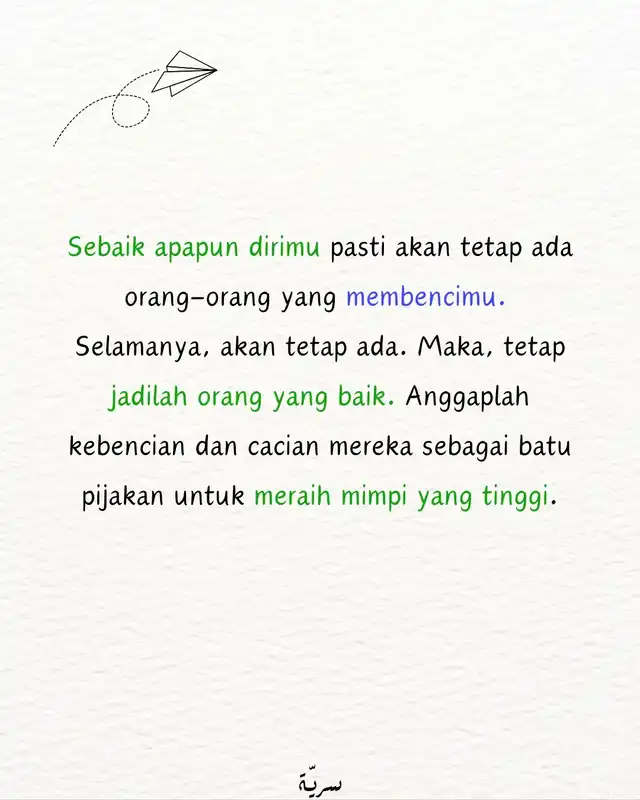 Sebaik apapun dirimu pasti akan tetap ada
orang-orang yang membencimu.
Selamanya, akan tetap ada. Maka, tetap
jadilah orang yang baik. Anggaplah
kebencian dan cacian mereka sebagai batu
pijakan untuk meraih mimpi yang tinggi.
سريّة